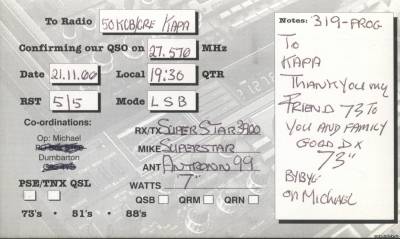 To Radio 50KCB/ORE KAPA
Confirming our QSO on 27.570 MHz
Date 21.11.00 Local 19:30 QTR
RST 5/5 Mode LSB
Co-ordinations:
Op: Michael
Dumbarton
RX/TX SUPER STAR 3900
MIKE SUPERSTAR
ANT ANTRONN 99
WATTS "7"
PSE/TNX QSL
QSB QRM QRN
73's · 51's · 88's
Notes: 319-PROG
TO
KAPA
THANK YOU MY
FRIEND 73 TO
YOU AND FAMILY
GOOD DX
73"
BYBYE
OM MICHAEL